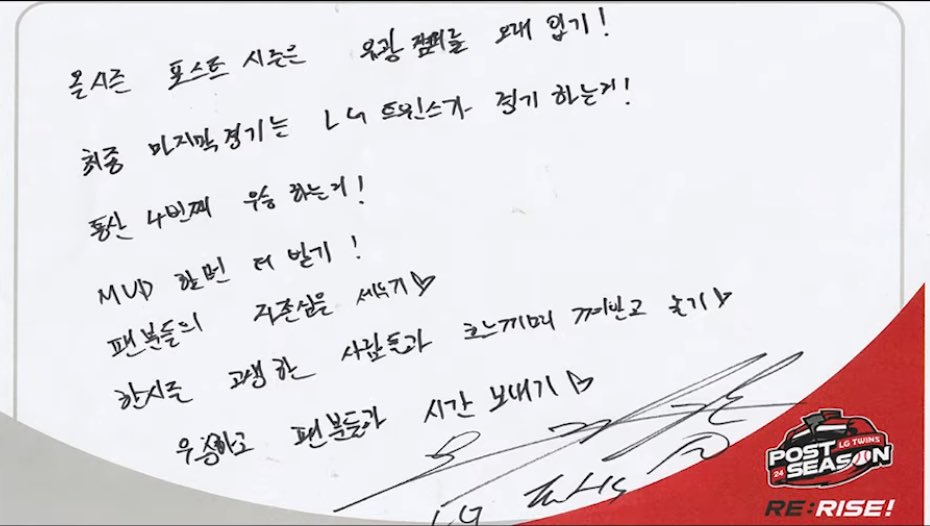 올시즌 포스트 시즌은 유광 점퍼를 오래 입기!
최종 마지막 경기는 LG 트윈스가 경기 하는거!
통산 4번째 우승 하는거!
MVP 한번 더 받기!
팬분들의 자존심을 세우기♡
한시즌 고생한 사람들과 흐느끼며 껴안고 울기♡
우승하고 팬분들과 시간 보내기♡
LG Twins
24 POST SEASON LG TWINS
RE:RISE!